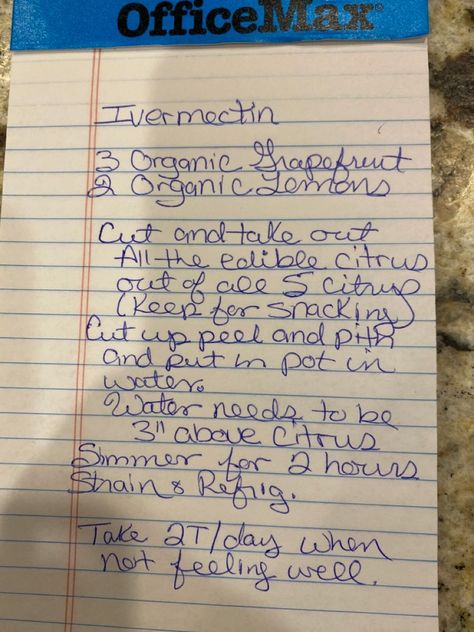 OfficeMax
Ivermectin
3 Organic Grapefruit
2 Organic Lemons
Cut and take out
All the edible citrus
out of all 5 citrus
(Keep for snacking)
Cut up peel and pith
and put in pot in
water.
Water needs to be
3" above citrus
Simmer for 2 hours
Strain & Refrig.
Take 2T/day when
not feeling well.